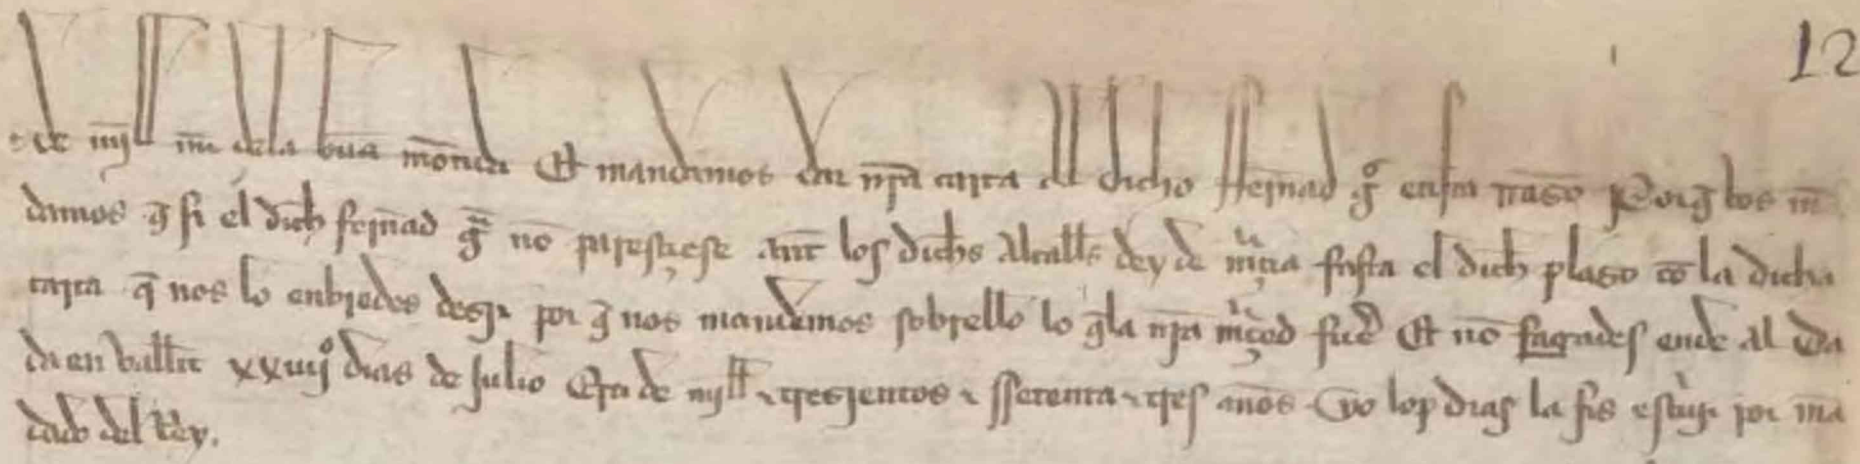 12
de mill mr dela buã moneda Et mandamos dar nrã carta al dicho fferrnãd gº en esta rrasõ Porq̃ vos mã
damos q̃ si el dichº ferrnãd gº nõ paresçiese ante los dichˢ Alcalłłˢ dey de murçia fasta el dichº plaso cõ la dicha
carta q̃ nos lo enbiedes desir por q̃ nos mandemos sobrello lo q̃ la nrã merçed fuere Et nõ fagades ende al Da
da en vallit xxiiijº dias de julio Era de mill τ tresientos τ ssetenta τ tres años Yo lop dias la fis escriuir por mã
dado del Rey.